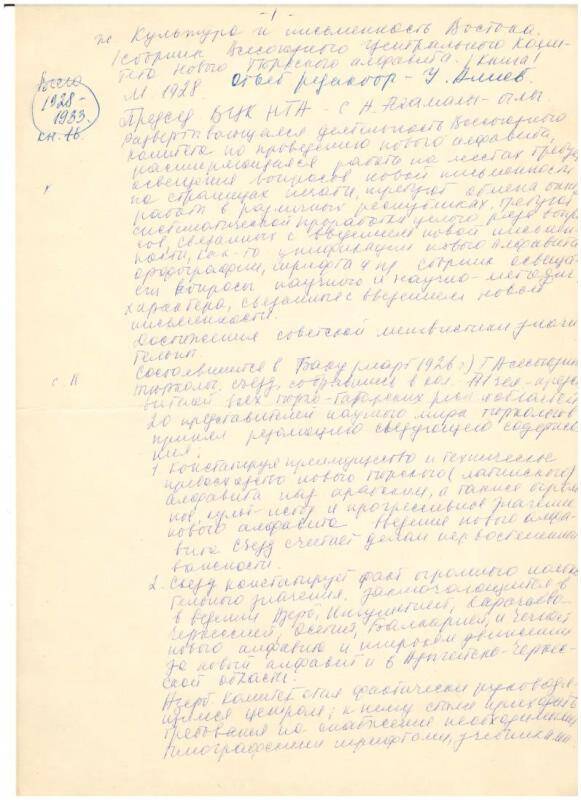 - 1 -
Культура и письменность Востока.
Сборник Всесоюзного Центрального Коми-
тета нового тюркского алфавита. Книга I
М 1928. ответ редактор - У. Алиев.
Всего
1928-
1933.
кн. 16
Председ ВЦК НТА - С А. Агамалы-оглы.
Развертывающаяся деятельность Всесоюзного
комитета по проведению нового алфавита,
расширяющаяся работа на местах требует
освещения вопросов новой письменности
на страницах печати, требует обмена опытом
работ в различных республиках, требует
систематической проработки целого ряда вопро
сов, связанных с введением новой письмен
ности, как-то унификации нового алфавита
орфографии, шрифта и пр сборник освеща
ет вопросы научного и научно-методич
характера, связанные с введением новой
письменности.
Достижения советской лингвистики значи
тельны
с. 11
Состоявшийся в Баку (март 1926 г.) I Всесоюзный
тюрколог. съезд, собравшись в кол. 111 чел-предста
вителей всех тюрко-татарских респ и областей
20 представителей научного мира тюркологов
принял резолюцию следующего содержа
ния:
1 Констатируя преимущество и техническое
превосходство нового тюркского (латинского)
алфавита над арабским, а также огром
ное культ-истор и прогрессивное значение
нового алфавита введение нового алфа-
вита съезд считает делом первостепенной
важности.
2. Съезд констатирует факт огромного положи
тельного значения, заключающегося в
введении Азерб, Ингушетией, Карачаево-
Черкессией, Осетией, Балкарией, и Чечней
нового алфавита и широком движении
за новый алфавит и в Адыгейско-Черкес-
ской области.
Азерб. Комитет стал фактически руководя-
щимся центром; к нему стали приходить
требования на снабжение необходимыми
типографскими шрифтами, учебниками